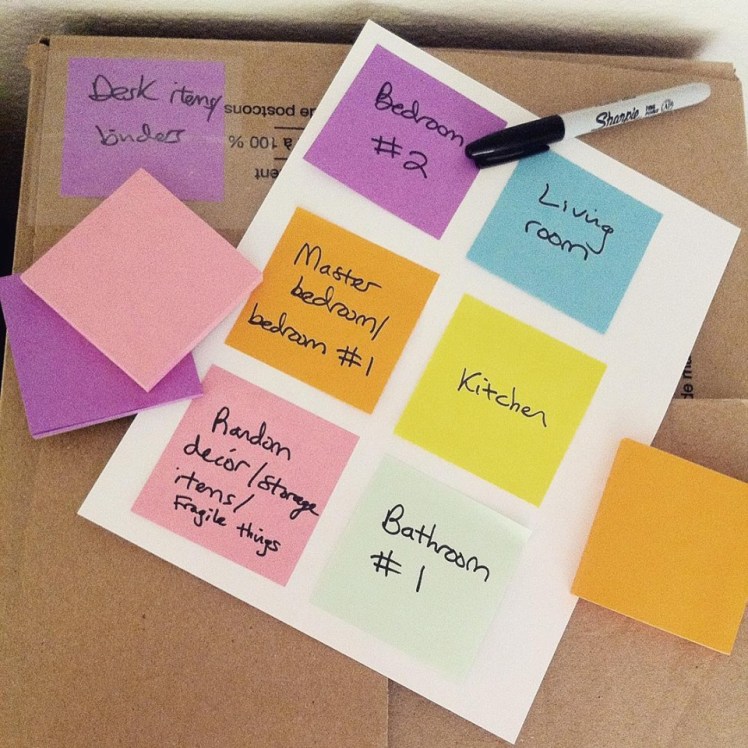 Desk items
binders
Bedroom
#2
Living
room
Master
bedroom/
bedroom #1
Kitchen
Random
decór/storage
items/
Fragile things
Bathroom
#1
Sharpie
à 100 %
de postcons